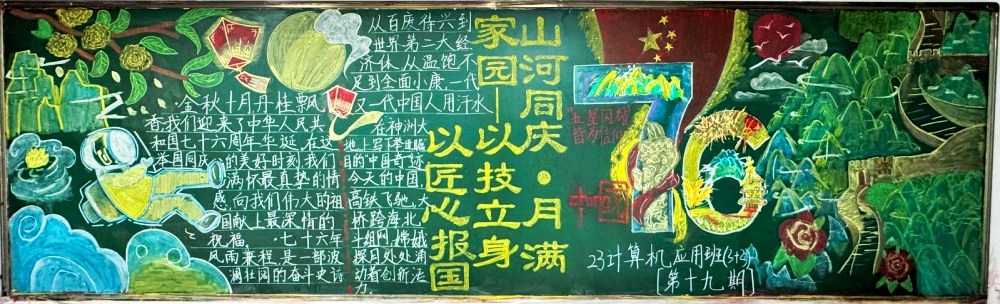 金秋十月丹桂飘
香我们迎来了中华人民共
和国七十六周年华诞,在这
举国同庆的美好时刻,我们
满怀最真挚的情
感向我们伟大的祖
国献上最深情的
祝福,七十六年
风雨兼程,是一部波
澜壮阔的奋斗史诗
从百废待兴到
世界第二大经
济体,从温饱不
足到全面小康,一代
又一代中国人用汗水
在神州大
地上写下举世瞩
目的中国奇迹
今天的中国,
高铁飞驰,大
桥跨海,北
斗组网,嫦娥
探月处处涌
动着创新活
力
山河同庆·月满
家园—以技立身
以匠心报国
五星闪耀
皆为信仰
76
china
23计算机应用班(3+2)
[第十九期]